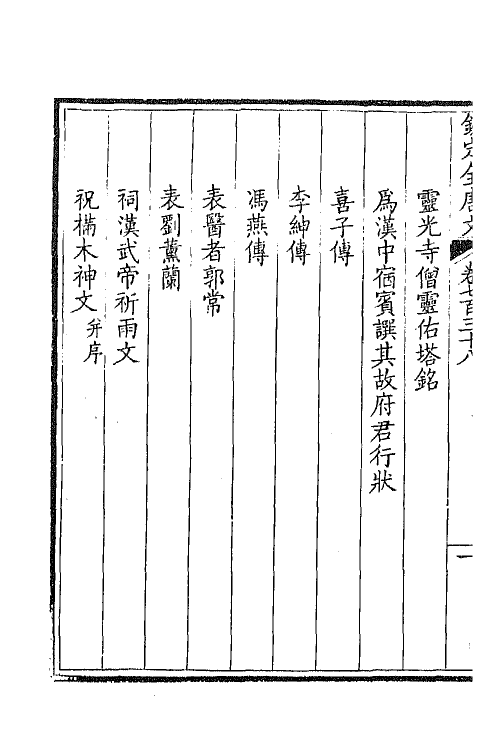 欽定全唐文 卷七百三十八 一
靈光寺僧靈佑塔銘
爲漢中宿賓譔其故府君行狀
喜子傳
李紳傳
馮燕傳
表醫者郭常
表劉薰蘭
祠漢武帝祈雨文
祝樠木神文 并序